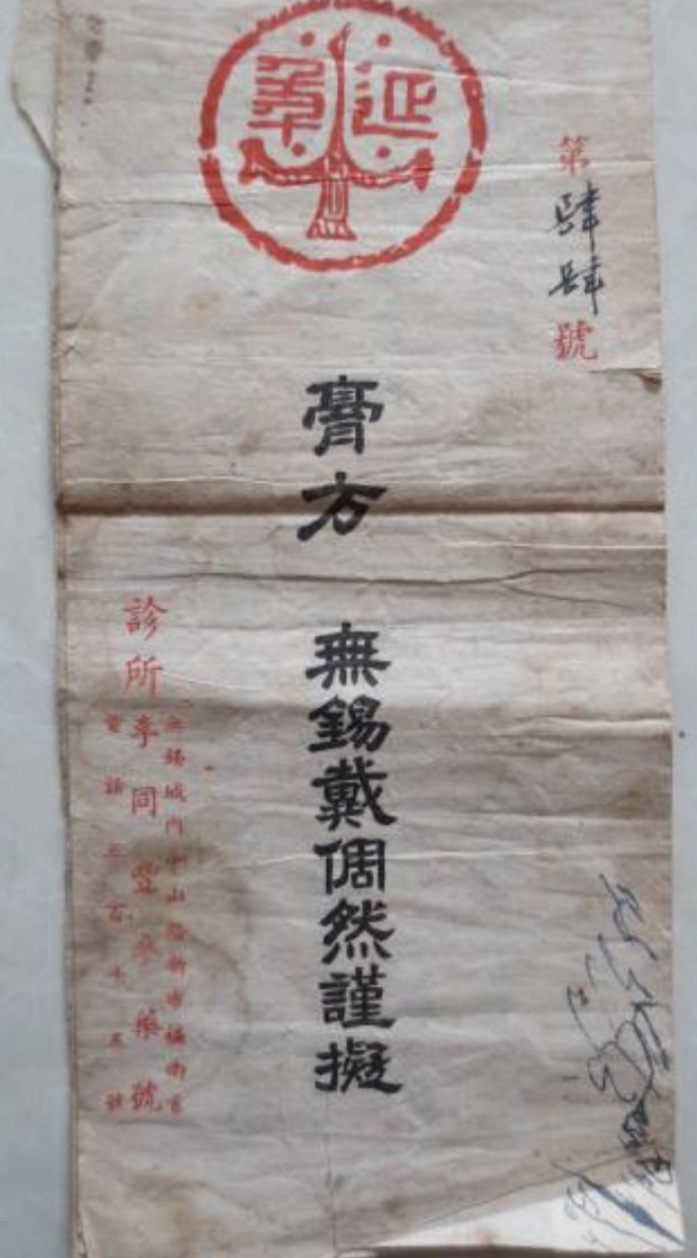 延年
第肆肆號
膏方 無錫戴倜然謹擬
診所
無錫城內中山路新市橋南首
李同豐參藥號
電話三百十五號